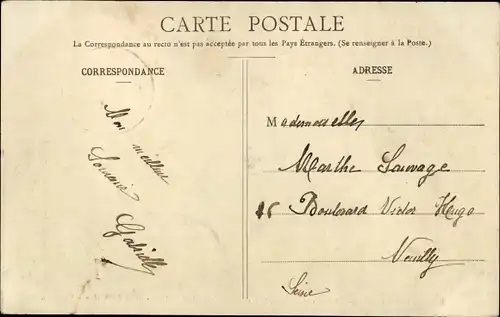 CARTE POSTALE
La Correspondance au recto n'est pas acceptée par tous les Pays Étrangers. (Se renseigner à la Poste.)
CORRESPONDANCE
Mon meilleur
Souvenir
Gabrielle
ADRESSE
Mademoiselle
Marthe Sauvage
Boulevard Victor Hugo
Neuilly
Seine